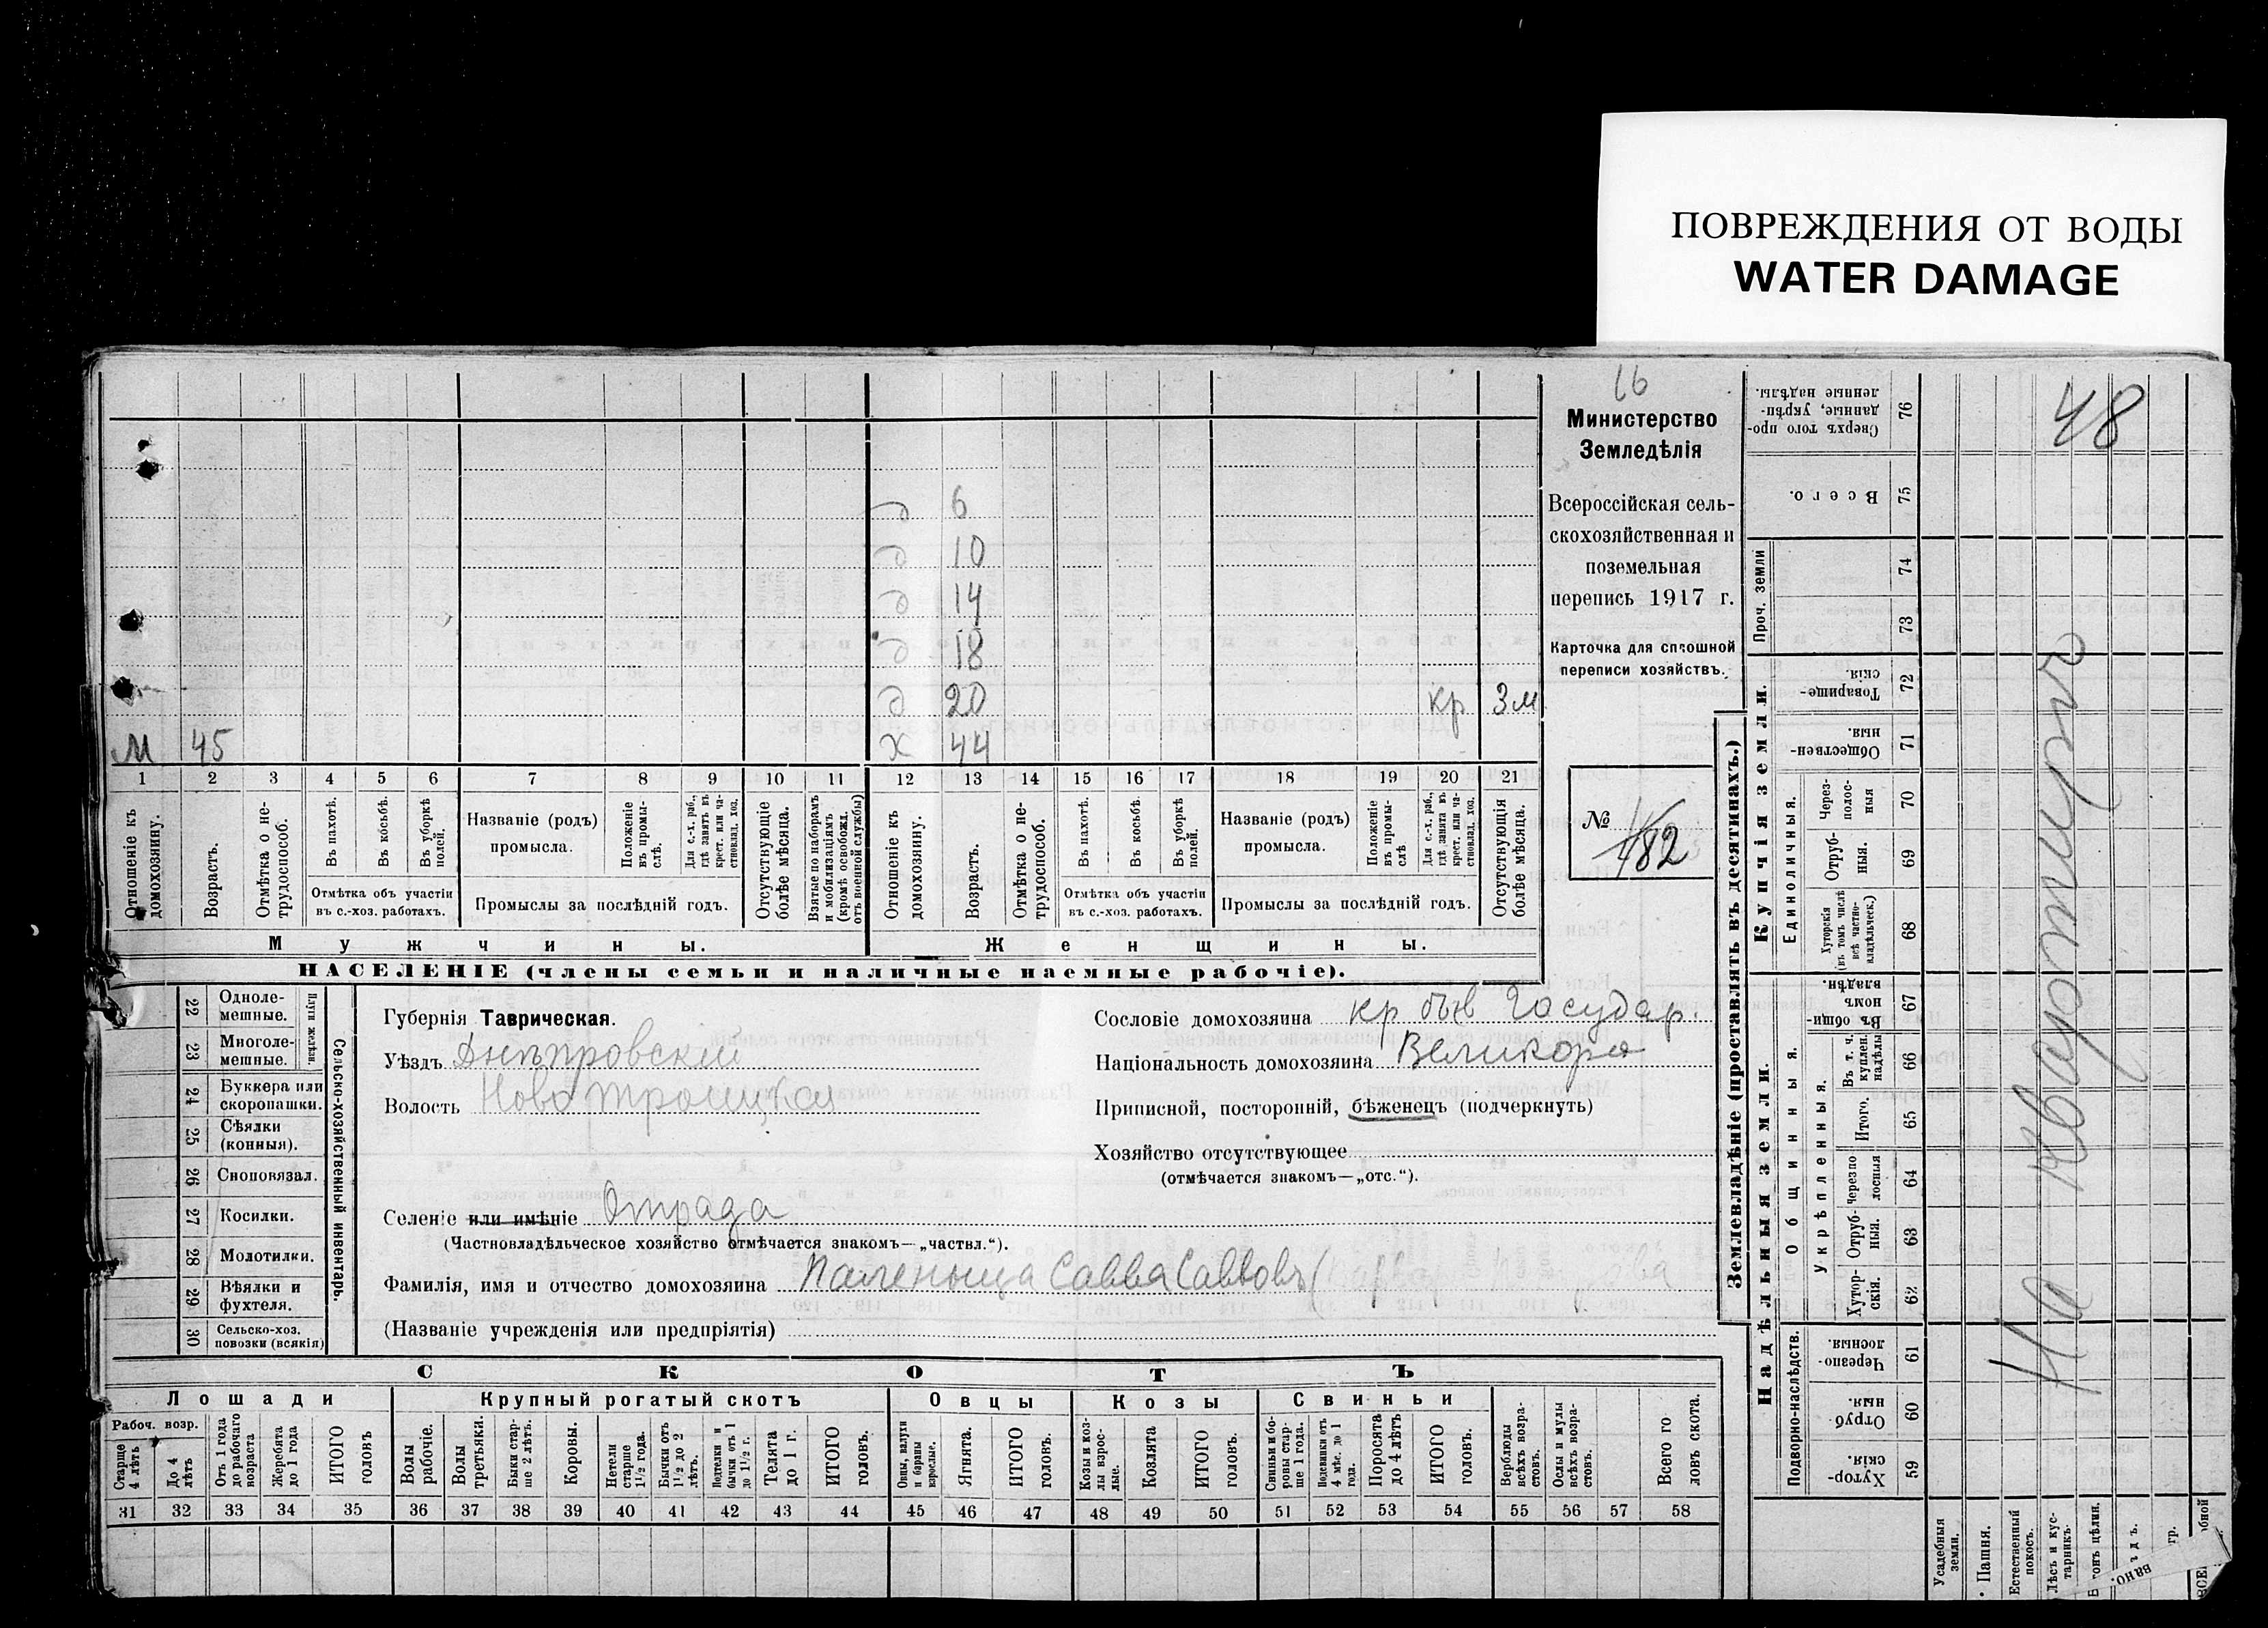 ПОВРЕЖДЕНИЯ ОТ ВОДЫ
WATER DAMAGE
16
Министерство
Земледѣлія
Всероссійская сель-
скохозяйственная и
поземельная
перепись 1917 г.
Карточка для сплошной
переписи хозяйствъ.
№
182
д 6
д 10
д 14
д 18
д 20 кр 3м
М 45 х 44
1 2 3 4 5 6 7 8 9 10 11 12 13 14 15 16 17 18 19 20 21
Отношеніе къ домохозяину.
Возрастъ.
Отмѣтка о не-трудоспособ.
Въ пахотѣ.
Въ косьбѣ.
Въ уборкѣ полей.
Отмѣтка объ участіи
въ с.-хоз. работахъ.
Названіе (родъ)
промысла.
Положеніе въ промы-слѣ.
Для с.-х. раб., гдѣ занятъ въ крест. или ча-стновлад. хоз.
Промыслы за послѣдній годъ.
Отсутствующіе болѣе мѣсяца.
Взятые по наборамъ и мобилизаціямъ (кромѣ освобожд. отъ военной службы)
Отношеніе къ домохозяину.
Возрастъ.
Отмѣтка о не-трудоспособ.
Въ пахотѣ.
Въ косьбѣ.
Въ уборкѣ полей.
Отмѣтка объ участіи
въ с.-хоз. работахъ.
Названіе (родъ)
промысла.
Положеніе въ промы-слѣ
Для с.-х. раб., гдѣ занята въ крест. или ча-стновлад. хоз.
Промыслы за послѣдній годъ.
Отсутствующія болѣе мѣсяца.
Мужчины.
Женщины.
НАСЕЛЕНІЕ (члены семьи и наличные наемные рабочіе).
22 Одноле-мешные.
23 Многоле-мешные.
Плуги желѣзн.
24 Буккера или скоропашки.
25 Сѣялки (конныя).
26 Сноповязал.
27 Косилки.
28 Молотилки.
29 Вѣялки и фухтеля.
30 Сельско-хоз. повозки (всякія)
Сельско-хозяйственный инвентарь.
Губернія Таврическая.
Уѣздъ Днѣпровскій
Волость Ново Троицкая
Селеніе или имѣніе Отрада
(Частновладѣльческое хозяйство отмѣчается знакомъ—„частвл.“).
Фамилія, имя и отчество домохозяина Савва Саввовъ
(Названіе учрежденія или предпріятія)
Сословіе домохозяина кр быв Государ.
Національность домохозяина Великоро
Приписной, посторонній, бѣженецъ (подчеркнуть)
Хозяйство отсутствующее
(отмѣчается знакомъ—„отс.“).
СКОТЪ
Лошади
Крупный рогатый скотъ
Овцы
Козы
Свиньи
Рабоч. возр.
Старше 4 лѣтъ
До 4 лѣтъ
Отъ 1 года до рабочаго возраста
Жеребята до 1 года
ИТОГО головъ
Волы рабочіе.
Волы третьяки.
Быки стар-ше 2 лѣтъ.
Коровы.
Нетели старше 1½ года.
Бычки отъ 1½ до 2 лѣтъ.
Подтелки и бычки отъ 1 до 1½ г.
Телята до 1 г.
ИТОГО головъ.
Овцы, валухи и бараны взрослые.
Ягнята.
ИТОГО головъ.
Козы и коз-лы взрос-лые.
Козлята
ИТОГО головъ.
Свиньи и бо-ровы стар-ше 1 года.
Подсвинки отъ 4 мѣс. до 1 года.
Поросята до 4 лѣтъ
ИТОГО головъ.
Верблюды всѣхъ возра-стовъ.
Ослы и мулы всѣхъ возра-стовъ.
Всего го ловъ скота.
31 32 33 34 35 36 37 38 39 40 41 42 43 44 45 46 47 48 49 50 51 52 53 54 55 56 57 58
Землевладѣніе (проставлять въ десятинахъ.)
Надѣльныя земли.
Купчія земли.
Проч. земли
Подворно-наслѣдств.
Общинныя.
Укрѣпленныя.
Единоличныя.
Сверхъ того про-данные, укрѣп-ленные надѣлы. 76
Всего. 75
74
73
Товарище-скія. 72
Обществен-ныя. 71
Черезполос-ныя 70
Отруб-ныя. 69
Хуторскія (въ томъ числѣ всѣ частно-владѣльческ.) 68
Въ общи-номъ владѣн. 67
Въ т. ч. куплен. надѣлы 66
Итого. 65
Черезпо лосныя 64
Отруб-ныя. 63
Хутор-скія. 62
Черезпо-лосныя. 61
Отруб ныя. 60
Хутор-скія. 59
Усадебныя земли.
Пашня.
Естественный покосъ.
Лѣсъ и кус-тарникъ.
48
На квартирѣ